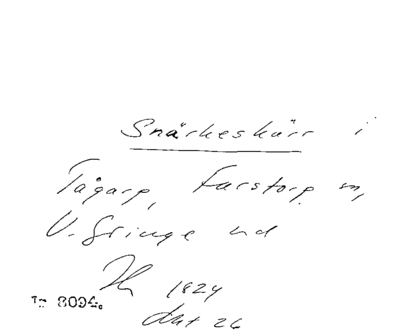 Snärkeskärr i
Tågarp, Farstorp sn,
V. Göinge hd
1824
akt 26
8094.